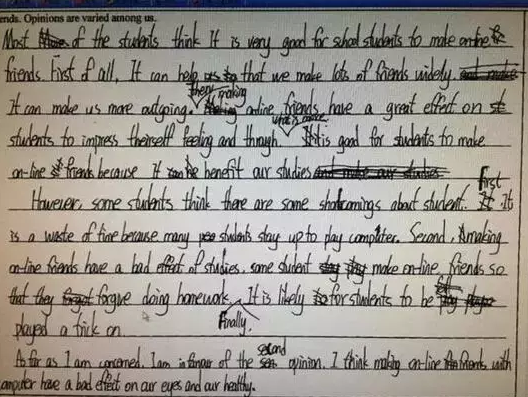 ends. Opinions are varied among us.
Most of the students think It is very good for school students to make on-line
friends. First of all, It can help us that we make lots of friends widely.
then making
It can make us more outgoing. on-line friends have a great effect on
what's more
students to impress theirself feeling and through. It is good for students to make
on-line friends because It can be benefit our studies
First
However, some students think there are some shortcomings about student. It
is a waste of time because many students stay up to play computer. Second, making
on-line friends have a bad effect of studies. some student make on-line friends so
that they forgive doing homework. It is likely for students to be
Finally.
played a trick on
second
As far as I am concerned. I am in favour of the opinion. I think making on-line friends with
computer have a bad effect on our eyes and our healthy.